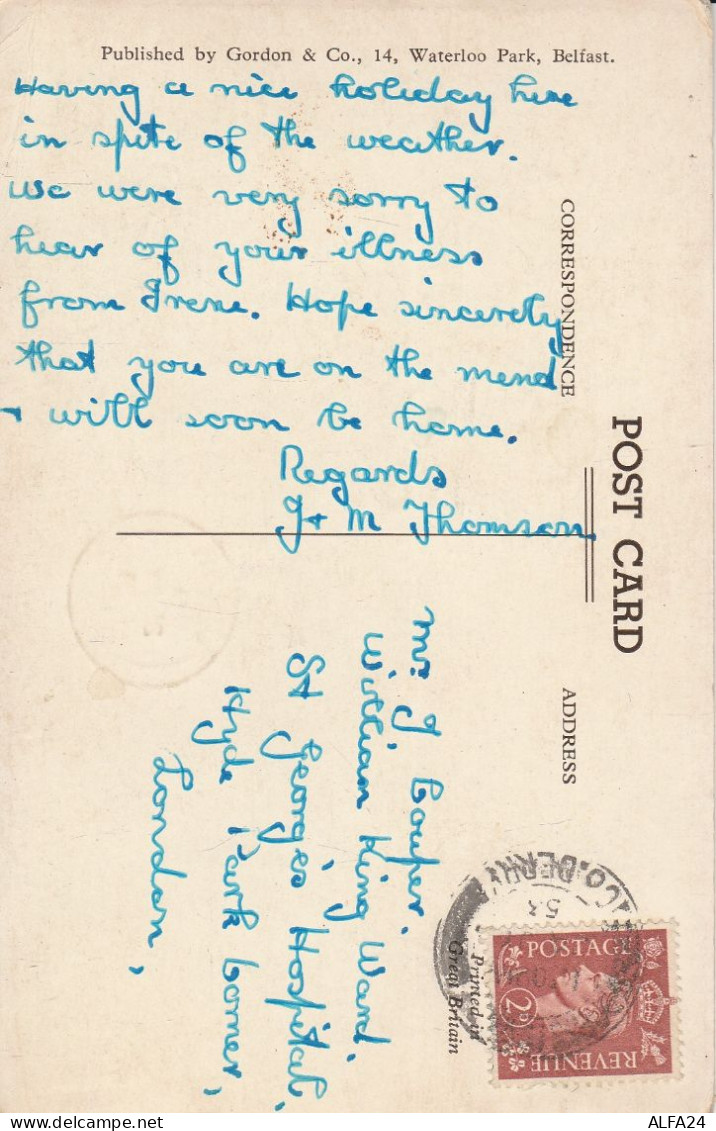 Published by Gordon & Co., 14, Waterloo Park, Belfast.
Having a nice holiday here
in spite of the weather.
We were very sorry to
hear of your illness
from Irene. Hope sincerely
that you are on the mend
+ will soon be home.
Regards
J + M Thomson.
CORRESPONDENCE
POST CARD
ADDRESS
Mr. J Couper.
William King Ward.
St George's Hospital,
Hyde Park Corner,
London,
Printed in
Great Britain
CO. DERRY
53
POSTAGE
2D
REVENUE
ALFA24